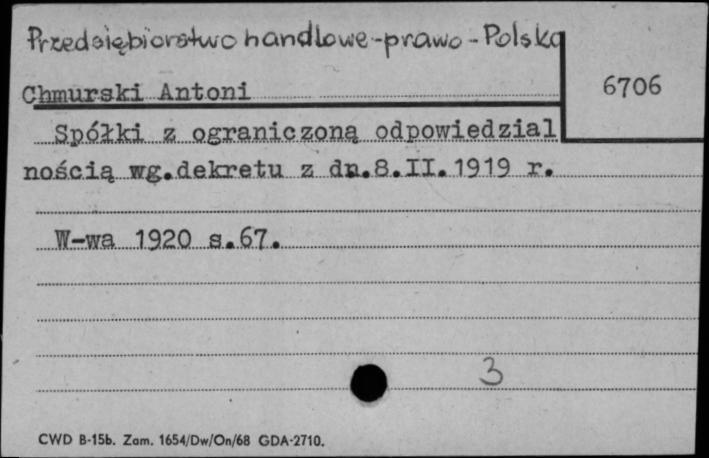 Przedsiębiorstwo handlowe-prawo-Polska
Chmurski Antoni
6706
Spółki z ograniczoną odpowiedzial
nością wg.dekretu z dn.8.II.1919 r.
W-wa 1920 s.67.
3
CWD B-15b. Zam. 1654/Dw/On/68 GDA-2710.